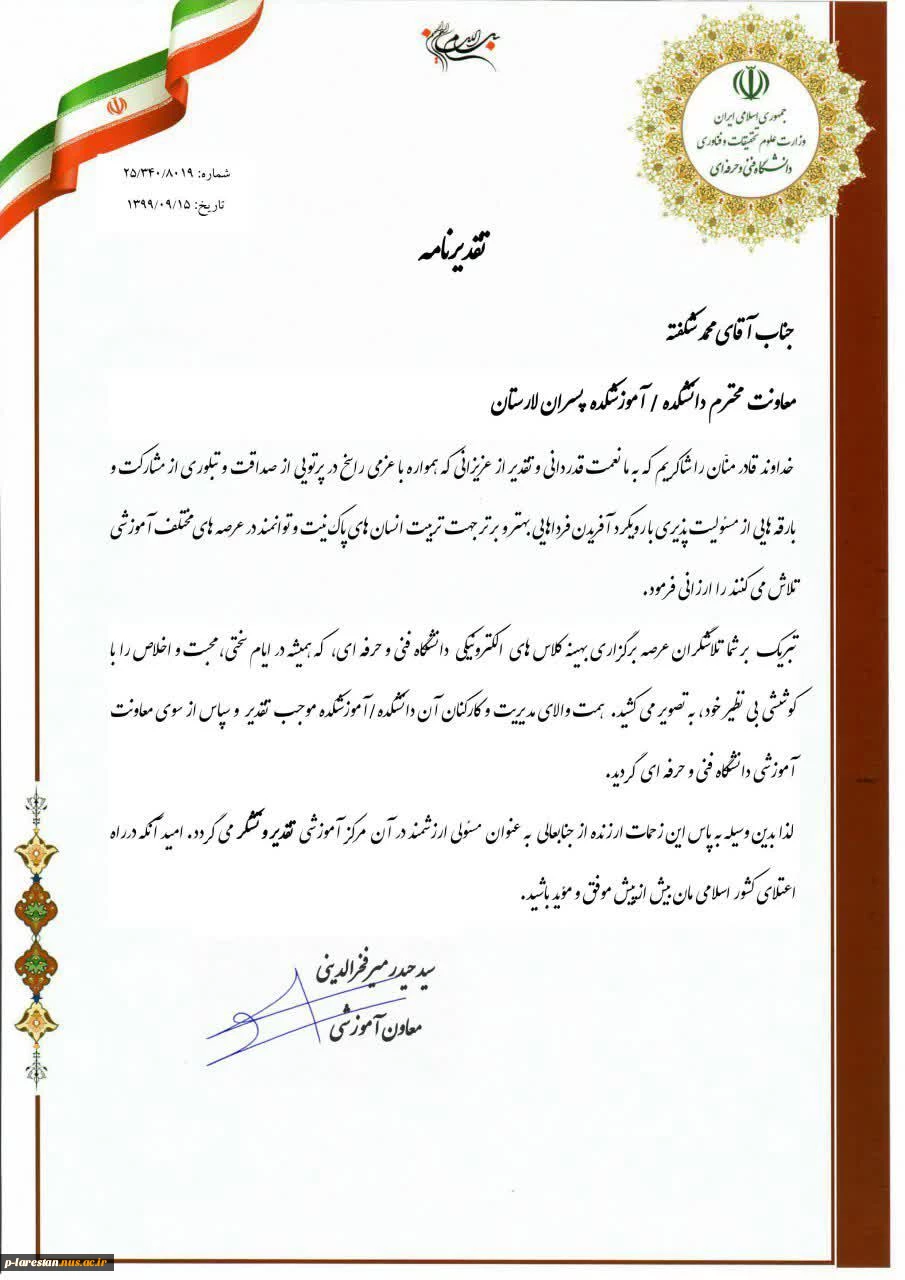 بسم الله الرحمن الرحیم
جمهوری اسلامی ایران
وزارت علوم تحقیقات و فناوری
دانشگاه فنی و حرفه ای
شماره: ۲۵/۳۴۰/۸۰۱۹
تاریخ: ۱۳۹۹/۰۹/۱۵
تقدیرنامه
جناب آقای محمد شگفته
معاونت محترم دانشکده / آموزشکده پسران لارستان
خداوند قادر منّان را شاکریم که به ما نعمت قدردانی و تقدیر از عزیزانی که همواره با عزمی راسخ در پرتویی از صداقت و تبلوری از مشارکت و
بارقه هایی از مسئولیت پذیری با رویکرد آفریدن فرداهایی بهتر و برتر جهت تربیت انسان های پاک نیت و توانمند در عرصه های مختلف آموزشی
تلاش می کنند را ارزانی فرمود.
تبریک بر شما تلاشگران عرصه برگزاری بهینه کلاس های الکترونیکی دانشگاه فنی و حرفه ای، که همیشه در ایام سختی، محبت و اخلاص را با
کوششی بی نظیر خود، به تصویر می کشید. همت والای مدیریت و کارکنان آن دانشکده/آموزشکده موجب تقدیر و سپاس از سوی معاونت
آموزشی دانشگاه فنی و حرفه ای گردید.
لذا بدین وسیله به پاس این زحمات ارزنده از جنابعالی به عنوان مسئولی ارزشمند در آن مرکز آموزشی تقدیر و تشکر می گردد. امید آنکه در راه
اعتلای کشور اسلامی مان بیش از پیش موفق و مؤید باشید.
سید حیدر میرفخرالدینی
معاون آموزشی
p-larestan.nus.ac.ir